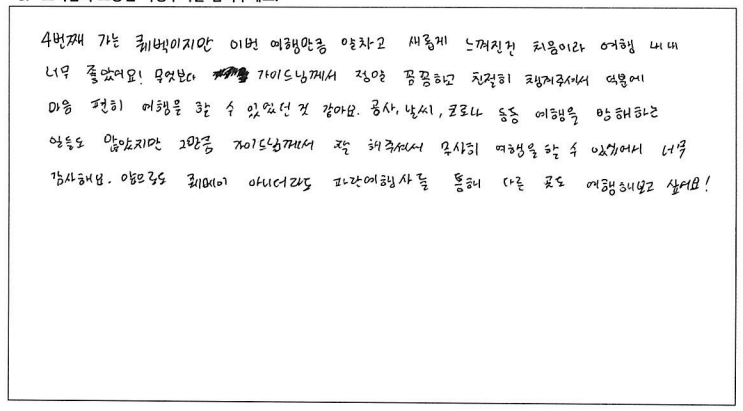 4번째 가는 퀘벡이지만 이번 여행만큼 알차고 새롭게 느껴진건 처음이라 여행 내내
너무 좋았어요! 무엇보다 가이드님께서 정말 꼼꼼하고 친절히 챙겨주셔서 덕분에
마음 편히 여행을 할 수 있었던 것 같아요. 공사, 날씨, 코로나 등등 여행을 방해하는
일들도 많았지만 그만큼 가이드님께서 잘 해주셔서 무사히 여행을 할 수 있었어서 너무
감사해요. 앞으로도 퀘벡이 아니더라도 파란여행사를 통해 다른 곳도 여행해보고 싶어요!